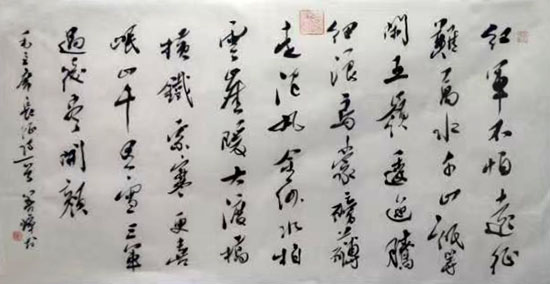 红軍不怕遠征
難萬水千山祇等
闲五嶺逶迤騰
细浪烏蒙磅礴
走泥丸金沙水拍
雲崖暖大渡橋
横鐵索寒更喜
岷山千里雪三軍
過後尽開顔
毛主席長征诗一首